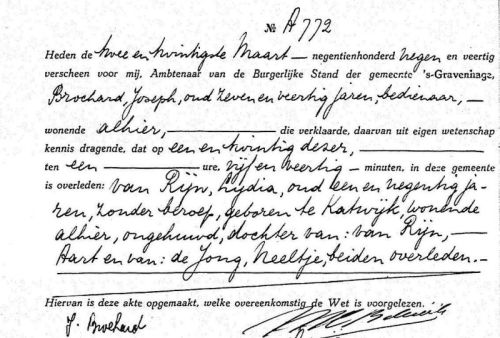 № A 772
Heden de twee en twintigste Maart — negentienhonderd negen en veertig
verscheen voor mij, Ambtenaar van de Burgerlijke Stand der gemeente 's-Gravenhage,
Brochard, Joseph, oud zeven en veertig jaren, bedienaar, —
wonende alhier, — die verklaarde, daarvan uit eigen wetenschap
kennis dragende, dat op een en twintig dezer, —
ten een — ure, vijf en veertig — minuten, in deze gemeente
is overleden: van Rijn, Lydia, oud een en negentig ja-
ren, zonder beroep, geboren te Katwijk, wonende
alhier, ongehuwd, dochter van: van Rijn, —
Aart en van: de Jong, Neeltje, beiden overleden. —
Hiervan is deze akte opgemaakt, welke overeenkomstig de Wet is voorgelezen.
J. Brochard